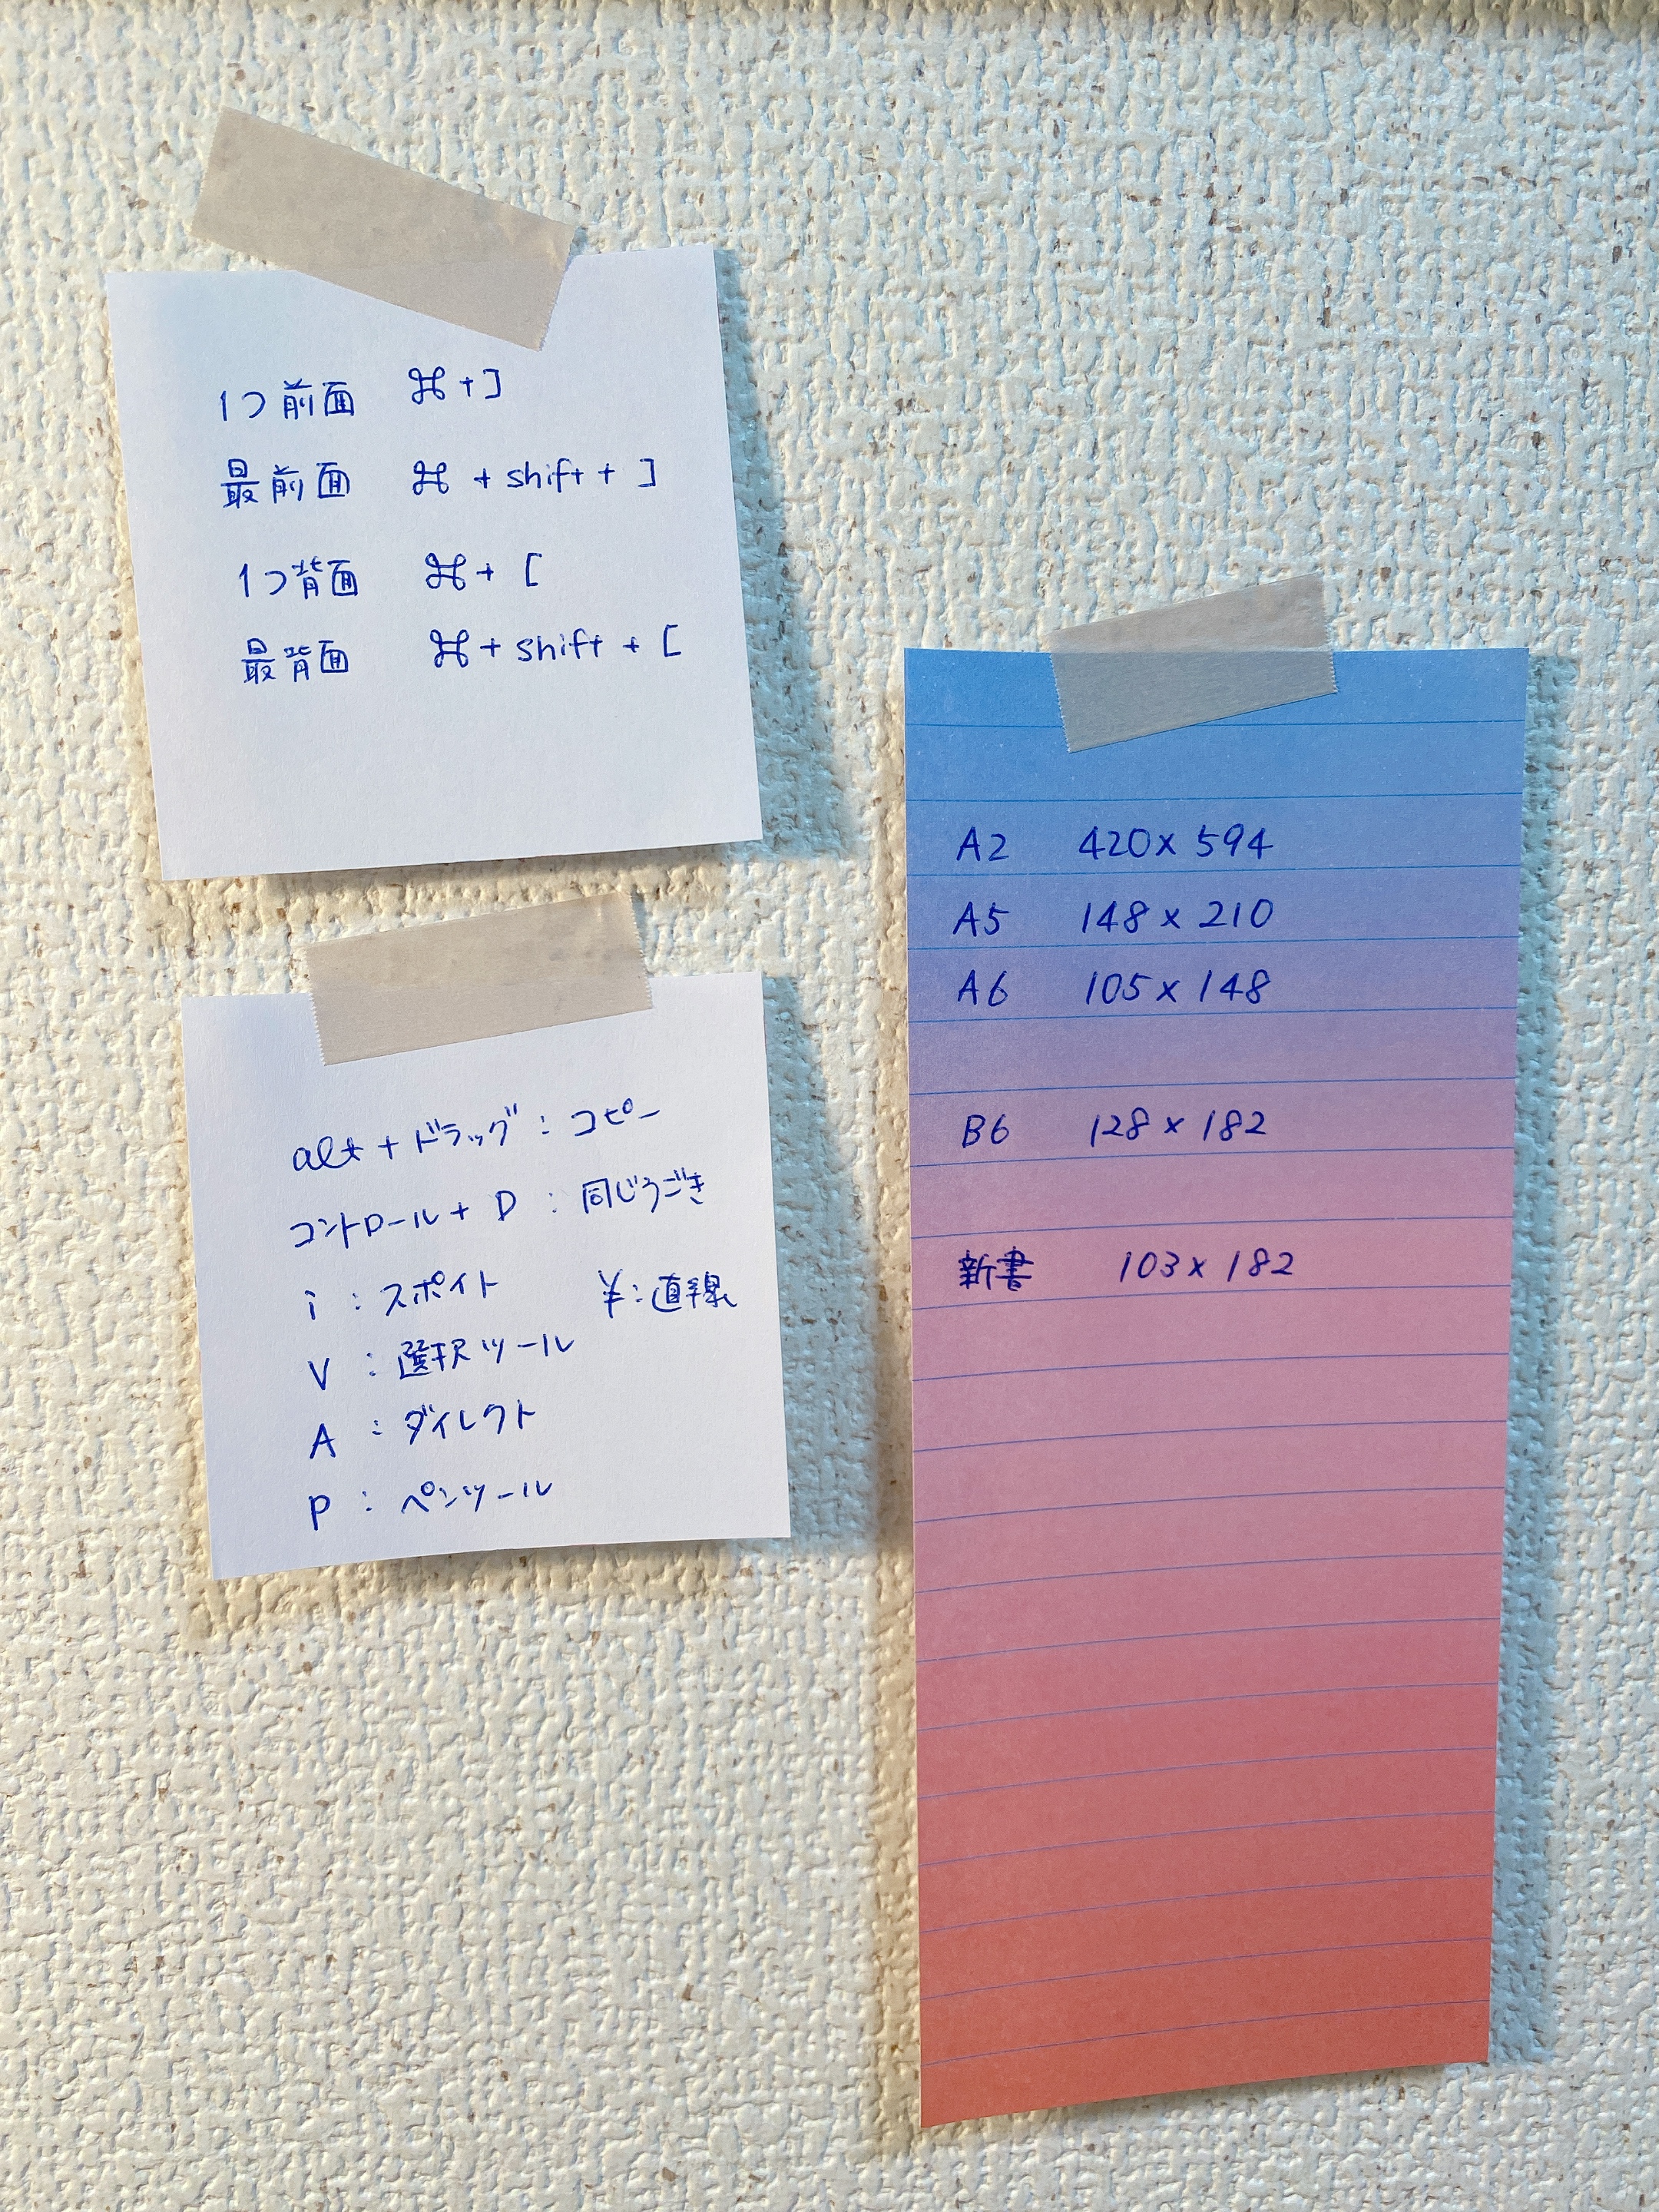 1つ前面 ⌘+]
最前面 ⌘+shift+]
1つ背面 ⌘+[
最背面 ⌘+shift+[
alt+ドラッグ：コピー
コントロール+D：同じうごき
i：スポイト ¥：直線
V：選択ツール
A：ダイレクト
P：ペンツール
A2 420×594
A5 148×210
A6 105×148
B6 128×182
新書 103×182